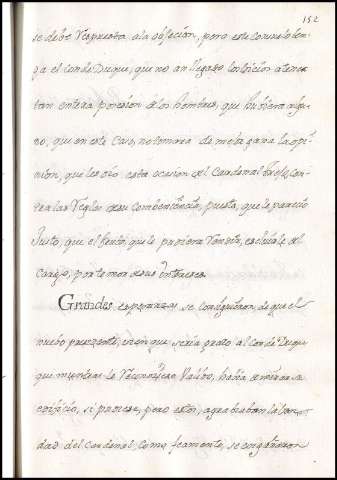 152
se debe respuesta a la objecion, pero este consuelo ten-
ga el conde Duque, que no an llegado los vicios a tener
tan entera posesion de los hombres, que hubiera algu-
no, que en este caso, no tomara de mala gana la opi-
nion, que les dio esta ocasion el Cardenal
tra las Reglas de su combeniencia, puesto, que le parecio
Justo, que el fento, que le pusiera Venecia, escluiale el
Cargo, por temor de sus intereses.
Grandes esperanzas se condiguieron, de que el
nuebo presidente, en que seria grato al conde Duque
que mientras le Reconociese Valido, habia de mirar su
edificio, si pudiese, pero estos, agrababan la bon-
dad del Cardenal, como feamente, se engañaron